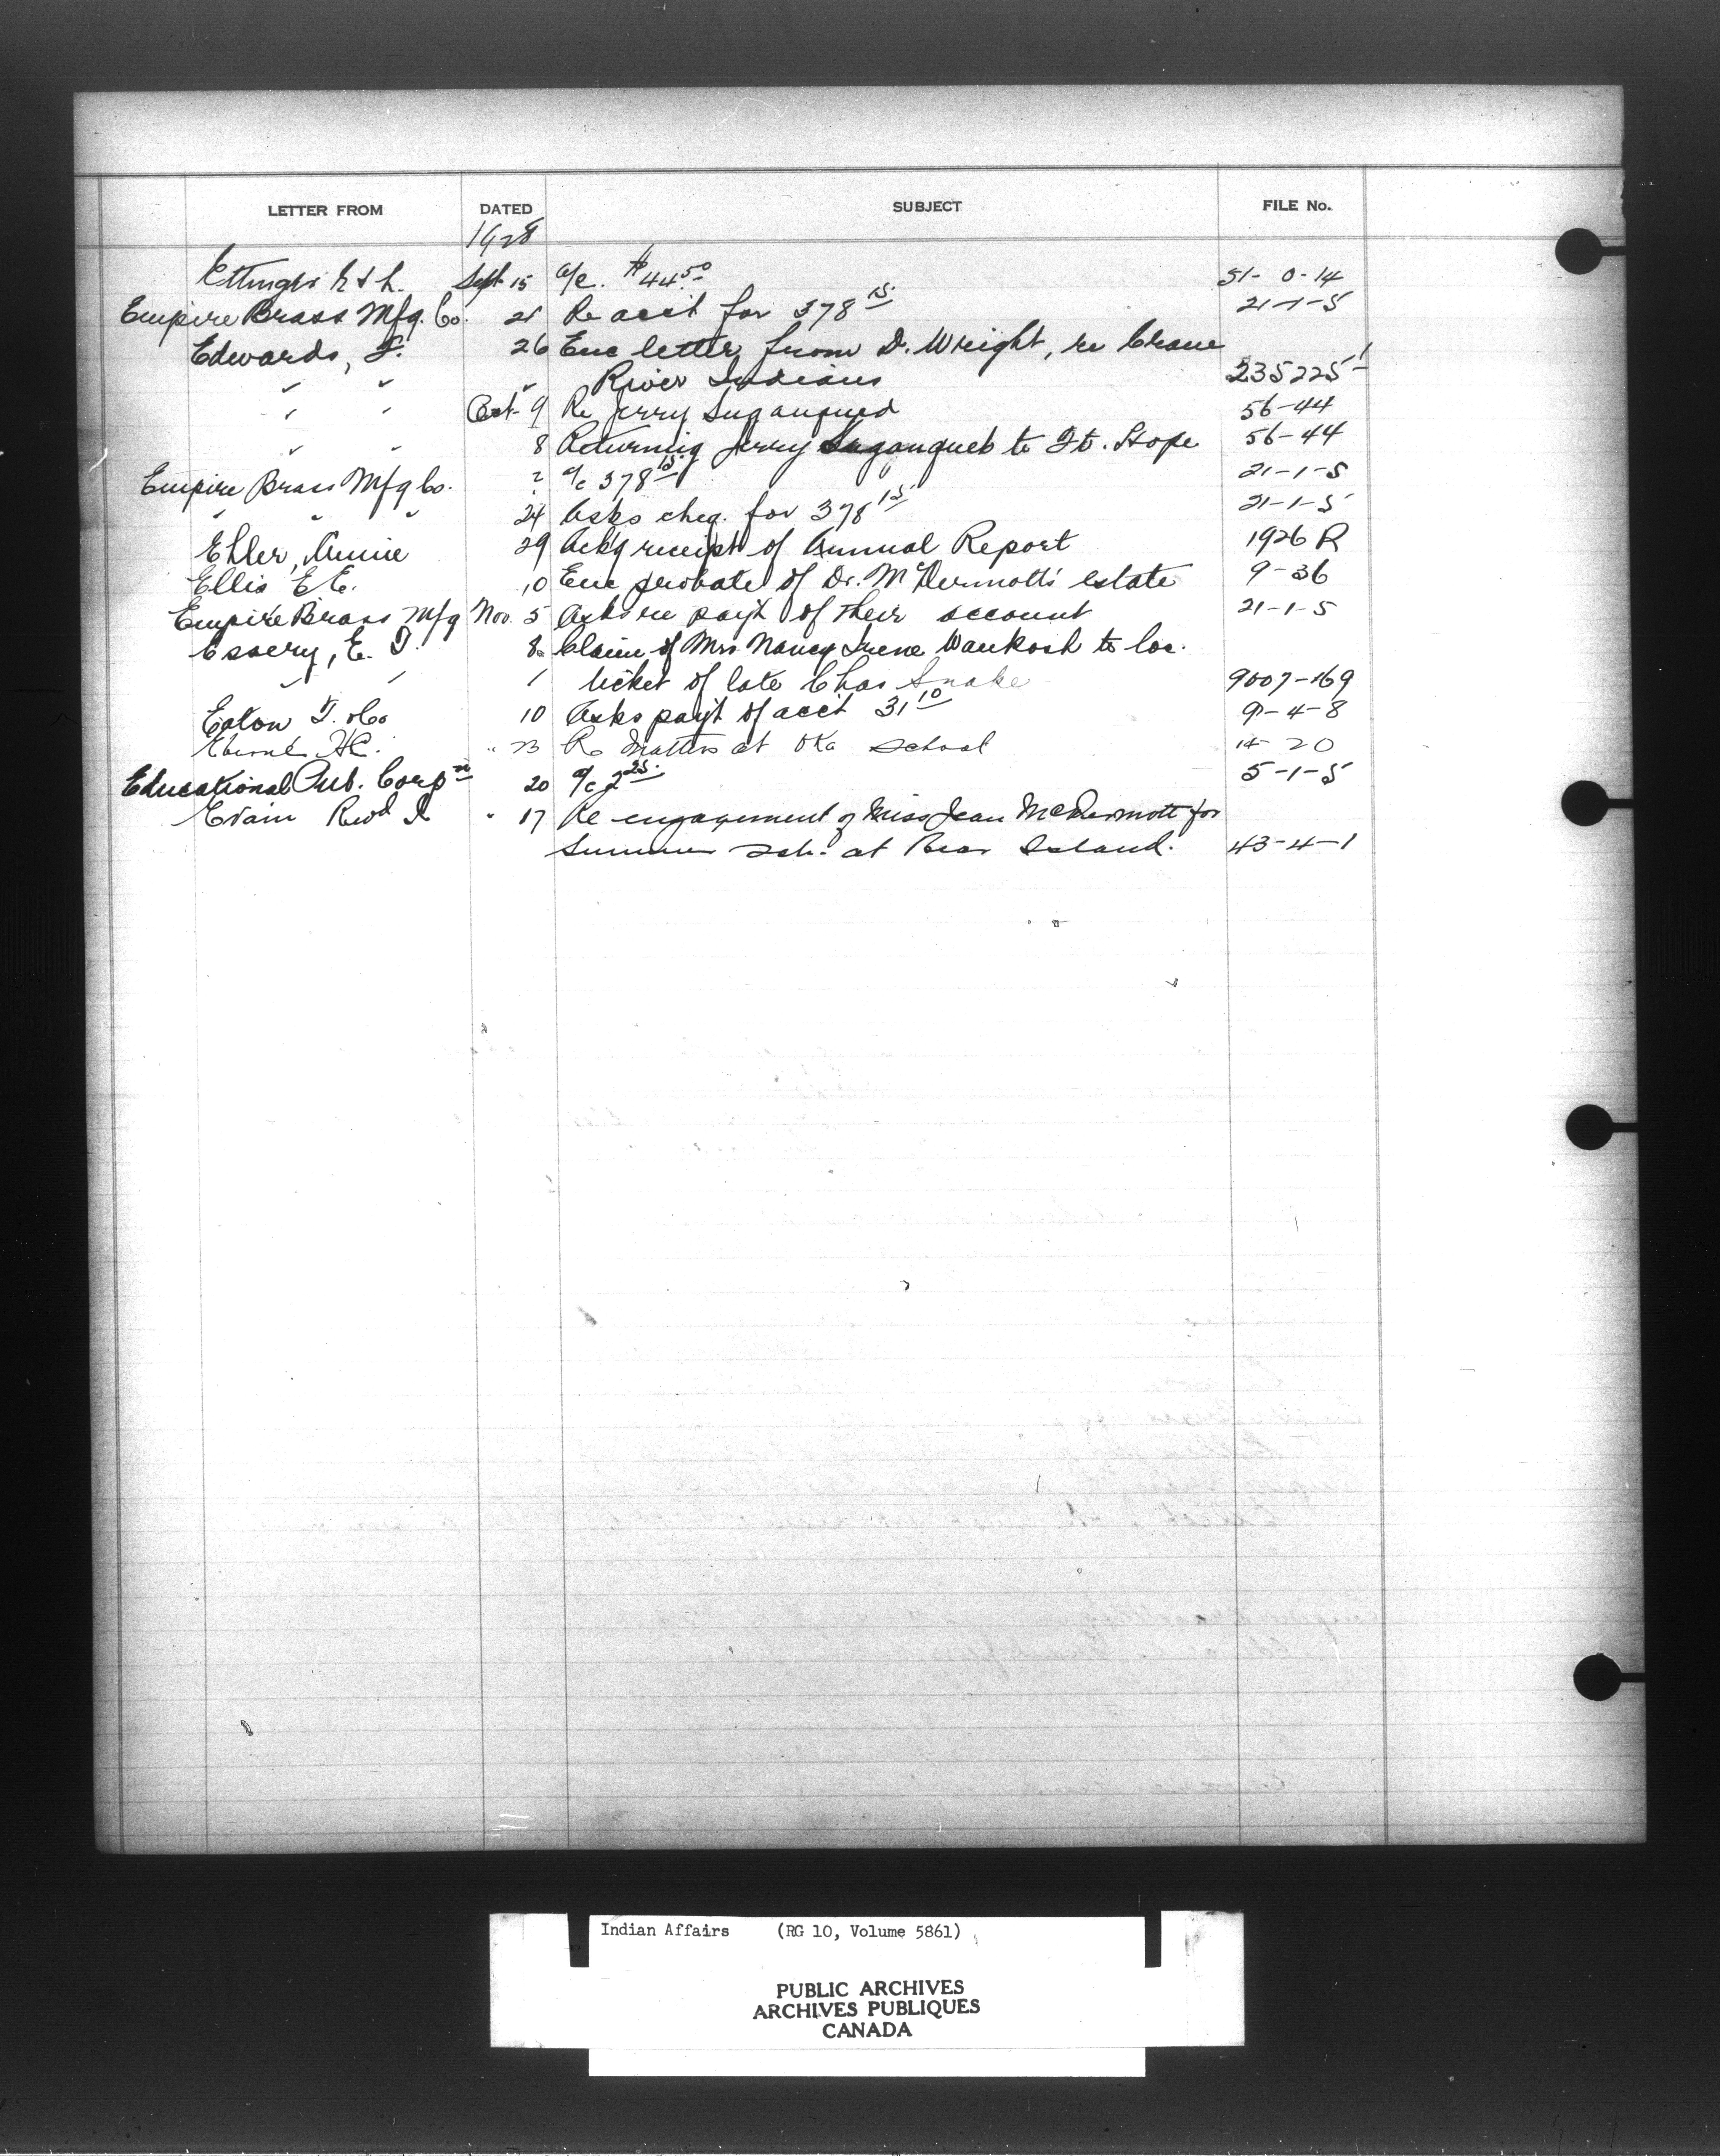 LETTER FROM DATED SUBJECT FILE No.
1928
Sept 15 a/c. $44.50 51-0-14
Empire Brass Mfg. Co. 21 Re acct for 378 15 21-1-5
Edwards, F. 26 Enc letter from D. Wright, re Crane
" " " River Indians 235225-1
" " Oct 9 Re Jerry 56-44
" " 8 Returning Jerry to Ft. Hope 56-44
Empire Brass Mfg Co. 2 a/c 378 15 21-1-5
" " " 24 Asks cheq. for 378 15 21-1-5
Ehler, Annie 29 Ackg receipt of Annual Report 1926 R
Ellis E C. 10 Enc probate of Dr. McDermott's estate 9-36
Empire Brass Mfg Nov. 5 Asks re payt of their account 21-1-5
Essery, E. T. 8 Claim of Mrs Nancy Irene Waukosh to loc.
" " " ticket of late Chas Snake 9007-169
Eaton T. & Co 10 Asks payt of acct 31 10 9-4-8
" 23 Re matters at Oka school 14-20
Educational Pub. Corpn 20 a/c 2 25 5-1-5
Revd " 17 Re engagement of Miss Jean McDermott for
Summer sch. at Bear Island. 43-4-1
Indian Affairs (RG 10, Volume 5861)
PUBLIC ARCHIVES
ARCHIVES PUBLIQUES
CANADA